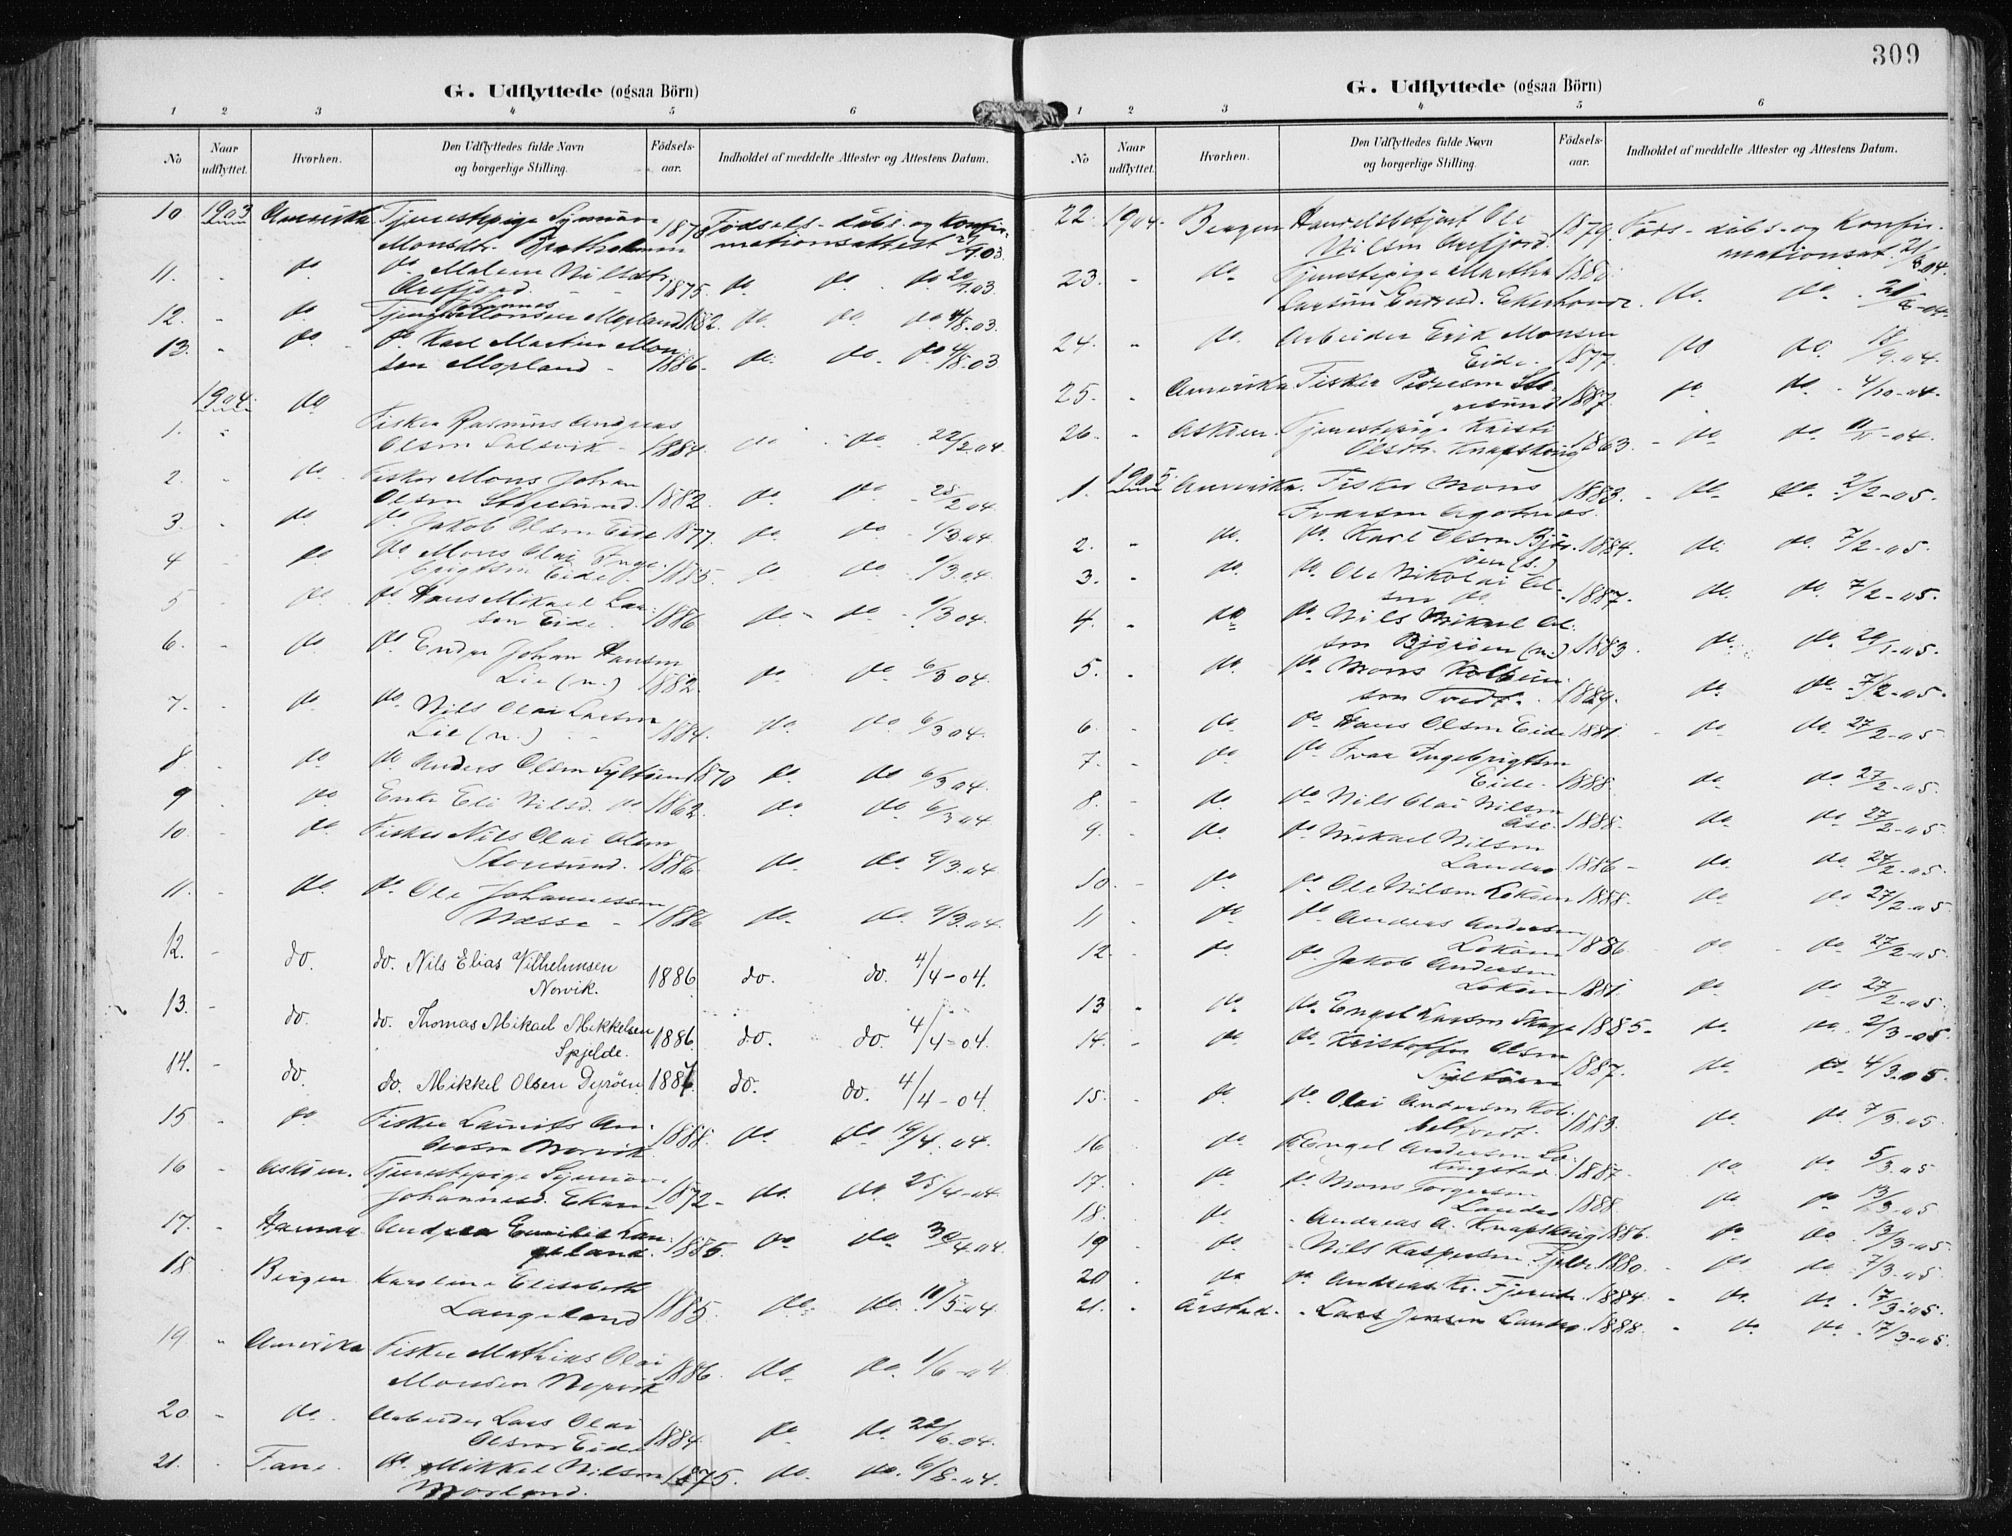 309
G. Udflyttede (ogsaa Börn)
1 2 3 4 5 6
No Naar udflyttet. Hvorhen. Den Udflyttedes fulde Navn og borgerlige Stilling. Födsels-aar. Indholdet af meddelte Attester og Attestens Datum.
10 1903 Amerika Tjenestepige Synnøve 1878 Fødsels- dåbs- og Konfir-
Monsdtr. mationsattest
11. do do Malene Nilsdtr.
1875. do do do 20/7.03
12. - do Tjener Johannes
Monsen Mopland 1882. do. do do 4/8.03
13. - do do Karl Martin Mon-
sen Mopland - 1886. do. do do 4/8.03
1904. do
1. Fisker Rasmus Andreas
Olsen Solsvik - 1884. do do 22/2.04
2. - do Fisker Mons Johan
Olsen Storesund. 1882. do do - 25/2 04
3. - do do Jakob Olsen Eide 1877. do do 1/3.04
4 - do do Mons Olai Inge-
brigtsen Eide. 1885. do do 1/3.04.
5 - do do Hans Mikael Lar-
sen Eide. 1886 do - do - 1/3 04.
6. - do do Endre Johan Hansen
Lie (n.) 1882. do do 6/3 04.
7. - do do Nils Olai Larsen
Lie (n.) 1884. do. do 6/3 04.
8. - do do Anders Olsen Syltøen 1870 do do 6/3 04.
9 - do Enke Eli Nilsd. do 1862 do. do 6/3 04
10. - do Fisker Nils Olai Olsen
Storesund. 1886. do do. 9/3.04
11. - do do Ole Johannessen
Næsse - 1886 do do. 9/3.04.
12. - do. do. Nils Elias Vilhelmsen
Norvik. 1886 do. do. 4/4-04.
13. - do. do. Thomas Mikael Mikkelsen
Spjelde. 1886 do. do. 4/4-04.
14. - do. do. Mikkel Olsen Dyrøen 1887. do. do. 4/4-04.
15 - do Fisker Laurits An-
dersen Morvik 1888. do do 19/4.04.
16 - Askøen. Tjenestepige Synnøve
Johannesd. Ekren 1872 - do. do. 25/4-04
17. - Hamar Andrea Emilie Lan-
geland. 1885. do do. 30/4.04.
18 - Bergen Karoline Elisabeth
Langeland 1885. do. do. 10/5-04
19 " Amerika Fisker Mathias Olai
Monsen Morvik 1886. do do. 1/6-04
20 - do. Arbeider Lars Olai
Olsen Eide 1884. do do. 22/6.04.
21. - Fane. do. Mikkel Nilsen 1875. do. do. 6/8.04.
Morland.
G. Udflyttede (ogsaa Börn)
1 2 3 4 5 6
No Naar udflyttet. Hvorhen. Den Udflyttedes fulde Navn og borgerlige Stilling. Födsels-aar. Indholdet af meddelte Attester og Attestens Datum.
22. 1904. Bergen Handelsbetjent Ole
Nilsen Arefjord. 1879. Føds- dåbs- og Konfir-
mationsat.
23. - do. Tjenestepige Martha
1880. do. do.
24. - do. Arbeider Erik Monsen
Eide. 1877. do do 18/9.04.
25. - Amerika Fisker Pedersen Sto-
resund 1887. do do. - 4/10-04.
26. - Askøen. Tjenestepige Kristi
Olsdtr. Knapskoug 1863 - do do.
1. 1905 Amerika. Fisker Mons
Ivarsen Agotnes. 1883. - do. do. 2/2-05.
2. - do. do. Karl Olsen Bjor-
øen (s.) 1884. do. do. 7/2-05.
3. - do. do. Ole Nikolai Ol-
sen do 1887. do. do. 7/2-05.
4. - do do. Nils Mikael Ol-
sen Bjorøen (n.) 1883. do. do. 20/1-05.
5. - do. do. Mons Kolbein-
sen Tvedt. 1884. do do. 7/2-05.
6 - do do. Hans Olsen Eide 1881 - do do. 27/2-05
7. - do do. Ivar Ingebrigtsen
Eide. 1888. do do. 27/2-05.
8. - do. do. Nils Olai Nilsen
Åse 1888. do. do. 27/2-05
9. - do. do. Mikael Nilsen
Landro 1886 - do. do. 27/2-05.
10. - do. do. Ole Nilsen Løkøen 1888. do do 27/2-05
11 - do do. Anders Andersen
Løkøen 1886 - do - do. 27/2-05.
12. - do. do. Jakob Andersen
Løkøen 1881. do do. 27/2-05
13 - do. do. Engel Larsen Skage 1885 - do. do. 2/3-05.
14. - do. do. Kristoffer Olsen
Syltøen 1887. do do 4/3-05.
15. - do do. Olai Andersen Kob-
beltvedt. 1883. do. do 7/3.05.
16 do Engel Andersen Lo-
1887. do do. 5/3.05
17. do do. Mons Torgersen
Landro 1888. do do 13/3-05
18. do - Andreas A. Knapskoug 1886. do do 13/3-05.
19 do. - Nils Kaspersen Fjeld 1880. - do do. 7/3.05
20 . do do Andreas Kr. 1884. - do. do. 17/3-05.
21. - Årstad. - Lars Jensen Landro. 1888. - do do. 17/3-05.